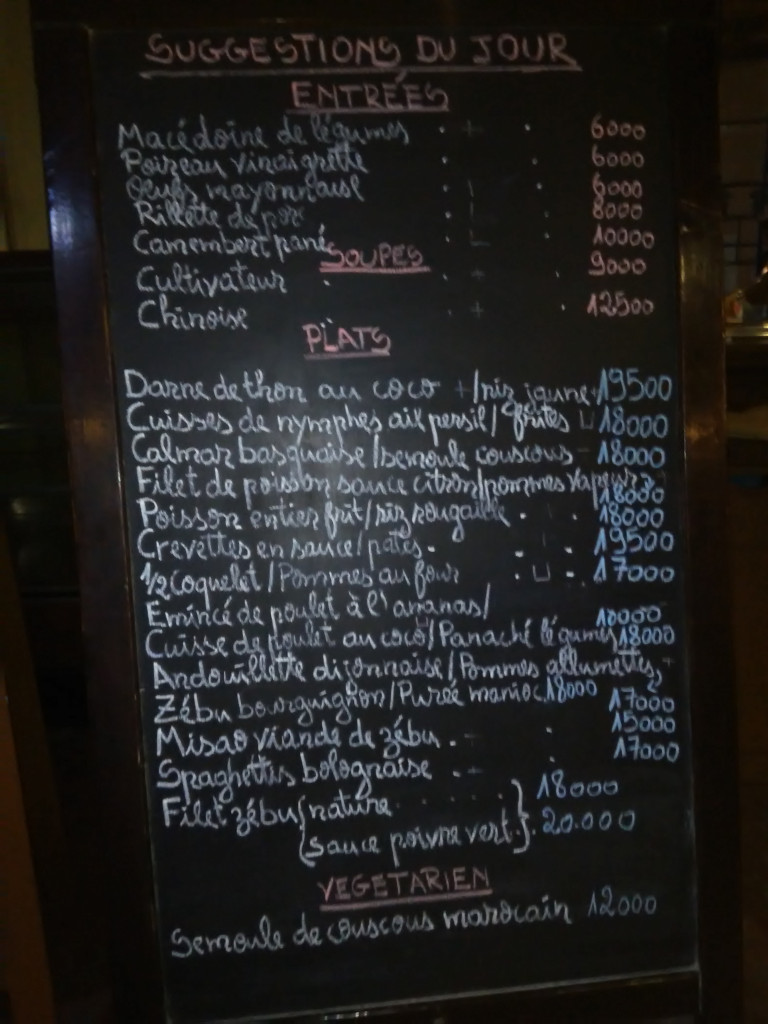 SUGGESTIONS DU JOUR
ENTRÉES
Macédoine de légumes 6000
Poireau vinaigrette 6000
Oeufs mayonnaise 6000
Rillette de porc 8000
Camembert pané 10000
SOUPES
Cultivateur 9000
Chinoise 12500
PLATS
Darne de thon au coco /riz jaune 19500
Cuisses de nymphes ail persil/frites 18000
Calmar basquaise/semoule couscous 18000
Filet de poisson sauce citron/pommes vapeur 18000
Poisson entier frit/riz rougaille 18000
Crevettes en sauce/pates 19500
1/2 Coquelet/Pommes au four 17000
Emincé de poulet à l'ananas/ 18000
Cuisse de poulet au coco/Panaché légumes 18000
Andouillette dijonnaise/Pommes allumettes, 18000
Zébu bourguignon/Purée manioc 17000
Misao viande de zébu 15000
Spaghettis bolognaise 17000
Filet zébu {nature } 18000
{sauce poivre vert } 20.000
VEGETARIEN
Semoule de couscous marocain 12000